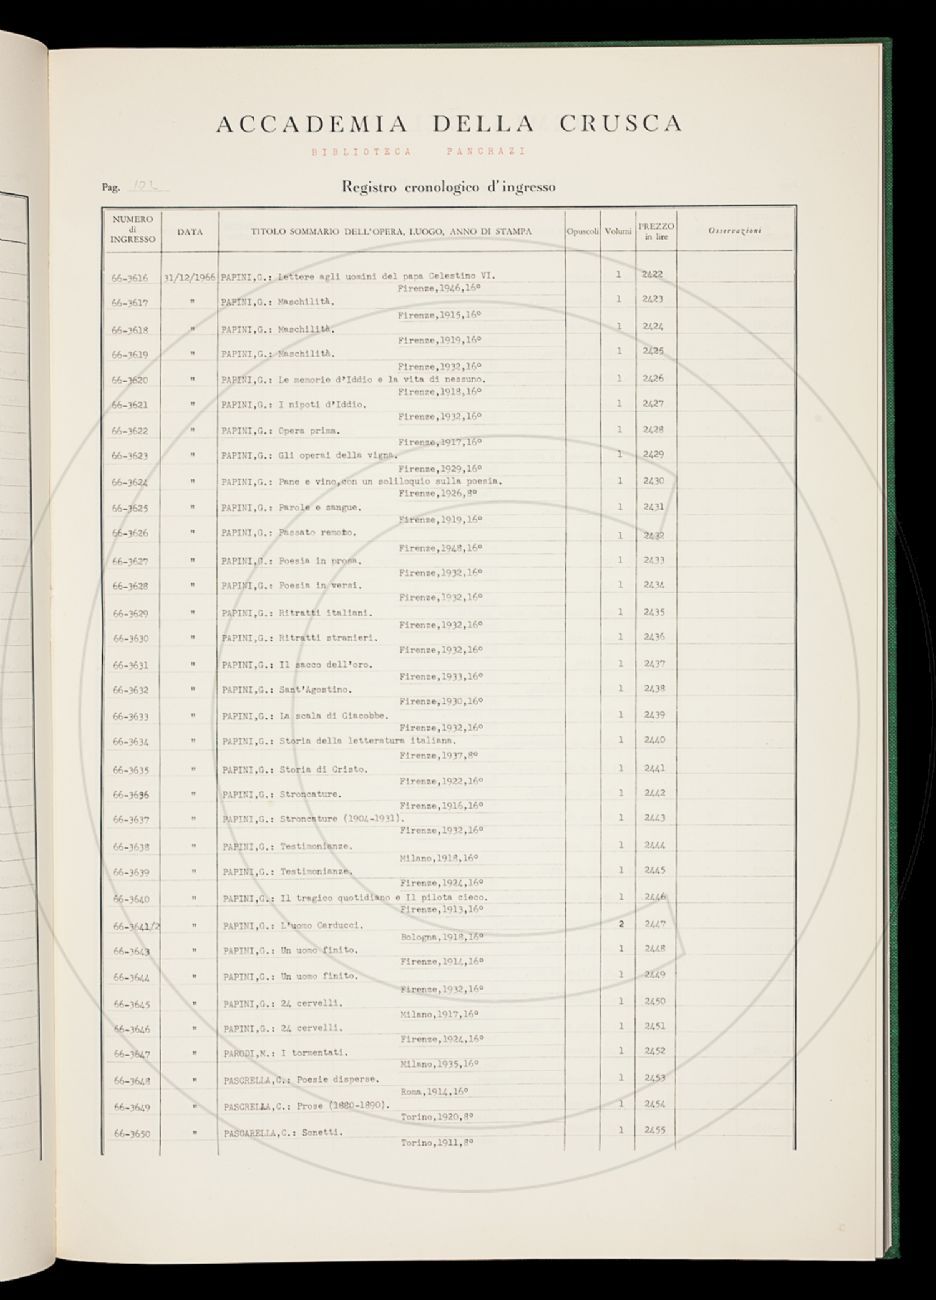 ACCADEMIA DELLA CRUSCA
BIBLIOTECA PANCRAZI
Pag. 102
Registro cronologico d'ingresso
NUMERO di INGRESSO DATA TITOLO SOMMARIO DELL'OPERA, LUOGO, ANNO DI STAMPA Opuscoli Volumi PREZZO in lire Osservazioni
66-3616 31/12/1966 PAPINI,G.: Lettere agli uomini del papa Celestino VI. 1 2422
Firenze,1946,16º
66-3617 " PAPINI,G.: Maschilità. 1 2423
Firenze,1915,16º
66-3618 " PAPINI,G.: Maschilità. 1 2424
Firenze,1919,16º
66-3619 " PAPINI,G.: Maschilità. 1 2425
Firenze,1932,16º
66-3620 " PAPINI,G.: Le memorie d'Iddio e la vita di nessuno. 1 2426
Firenze,1918,16º
66-3621 " PAPINI,G.: I nipoti d'Iddio. 1 2427
Firenze,1932,16º
66-3622 " PAPINI,G.: Opera prima. 1 2428
Firenze,1917,16º
66-3623 " PAPINI,G.: Gli operai della vigna. 1 2429
Firenze,1929,16º
66-3624 " PAPINI,G.: Pane e vino,con un soliloquio sulla poesia. 1 2430
Firenze,1926,8º
66-3625 " PAPINI,G.: Parole e sangue. 1 2431
Firenze,1919,16º
66-3626 " PAPINI,G.: Passato remoto. 1 2432
Firenze,1948,16º
66-3627 " PAPINI,G.: Poesia in prosa. 1 2433
Firenze,1932,16º
66-3628 " PAPINI,G.: Poesia in versi. 1 2434
Firenze,1932,16º
66-3629 " PAPINI,G.: Ritratti italiani. 1 2435
Firenze,1932,16º
66-3630 " PAPINI,G.: Ritratti stranieri. 1 2436
Firenze,1932,16º
66-3631 " PAPINI,G.: Il sacco dell'orco. 1 2437
Firenze,1933,16º
66-3632 " PAPINI,G.: Sant'Agostino. 1 2438
Firenze,1930,16º
66-3633 " PAPINI,G.: La scala di Giacobbe. 1 2439
Firenze,1932,16º
66-3634 " PAPINI,G.: Storia della letteratura italiana. 1 2440
Firenze,1937,8º
66-3635 " PAPINI,G.: Storia di Cristo. 1 2441
Firenze,1922,16º
66-3636 " PAPINI,G.: Stroncature. 1 2442
Firenze,1916,16º
66-3637 " PAPINI,G.: Stroncature (1904-1931). 1 2443
Firenze,1932,16º
66-3638 " PAPINI,G.: Testimonianze. 1 2444
Milano,1918,16º
66-3639 " PAPINI,G.: Testimonianze. 1 2445
Firenze,1924,16º
66-3640 " PAPINI,G.: Il tragico quotidiano e Il pilota cieco. 1 2446
Firenze,1913,16º
66-3641/2 " PAPINI,G.: L'uomo Carducci. 2 2447
Bologna,1918,16º
66-3643 " PAPINI,G.: Un uomo finito. 1 2448
Firenze,1914,16º
66-3644 " PAPINI,G.: Un uomo finito. 1 2449
Firenze,1932,16º
66-3645 " PAPINI,G.: 24 cervelli. 1 2450
Milano,1917,16º
66-3646 " PAPINI,G.: 24 cervelli. 1 2451
Firenze,1924,16º
66-3647 " PARODI,M.: I tormentati. 1 2452
Milano,1935,16º
66-3648 " PASCRELLA,C.: Poesie disperse. 1 2453
Roma,1914,16º
66-3649 " PASCRELLA,C.: Prose (1880-1890). 1 2454
Torino,1920,8º
66-3650 " PASCARELLA,C.: Sonetti. 1 2455
Torino,1911,8º